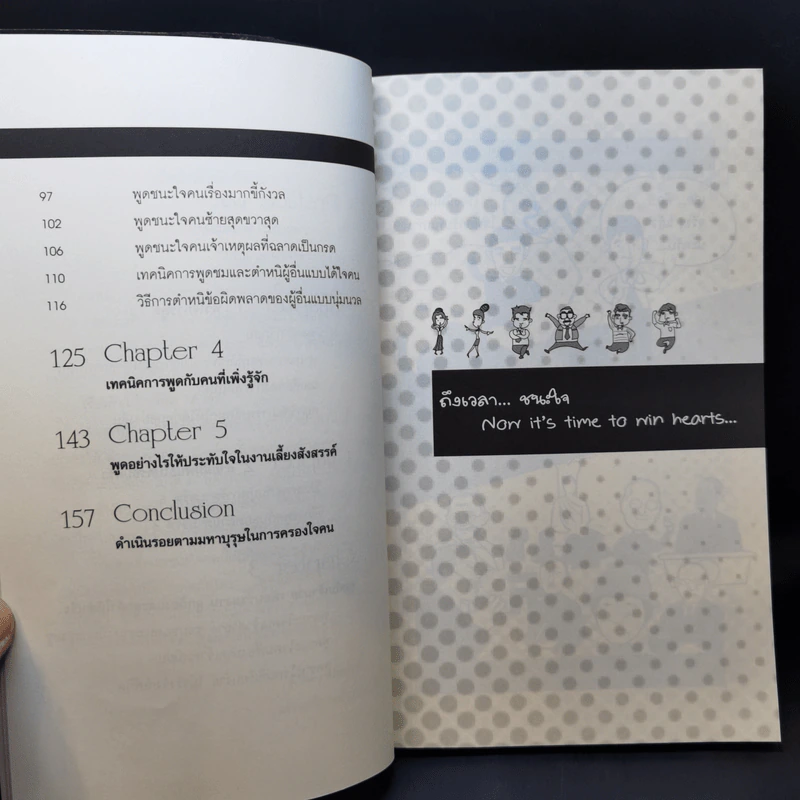 97 พูดชนะใจคนเรื่องมากขี้กังวล
102 พูดชนะใจคนซ้ายสุดขวาสุด
106 พูดชนะใจคนเจ้าเหตุผลที่ฉลาดเป็นกรด
110 เทคนิคการพูดชมและตำหนิผู้อื่นแบบได้ใจคน
116 วิธีการตำหนิข้อผิดพลาดของผู้อื่นแบบนุ่มนวล
125 Chapter 4
เทคนิคการพูดกับคนที่เพิ่งรู้จัก
143 Chapter 5
พูดอย่างไรให้ประทับใจในงานเลี้ยงสังสรรค์
157 Conclusion
ดำเนินรอยตามมหาบุรุษในการครองใจคน
ถึงเวลา... ชนะใจ
Now it's time to win hearts...